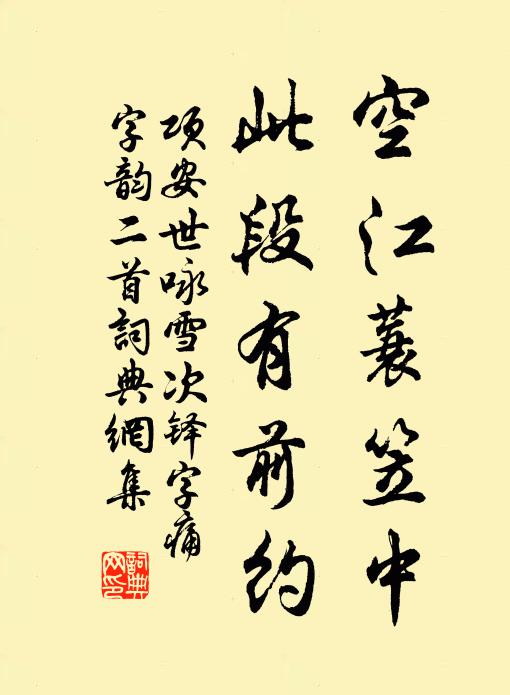 空江蓑笠中
此段有前约
项安世咏雪次铎字痛
字韵二首詞典網集
詞典
网印